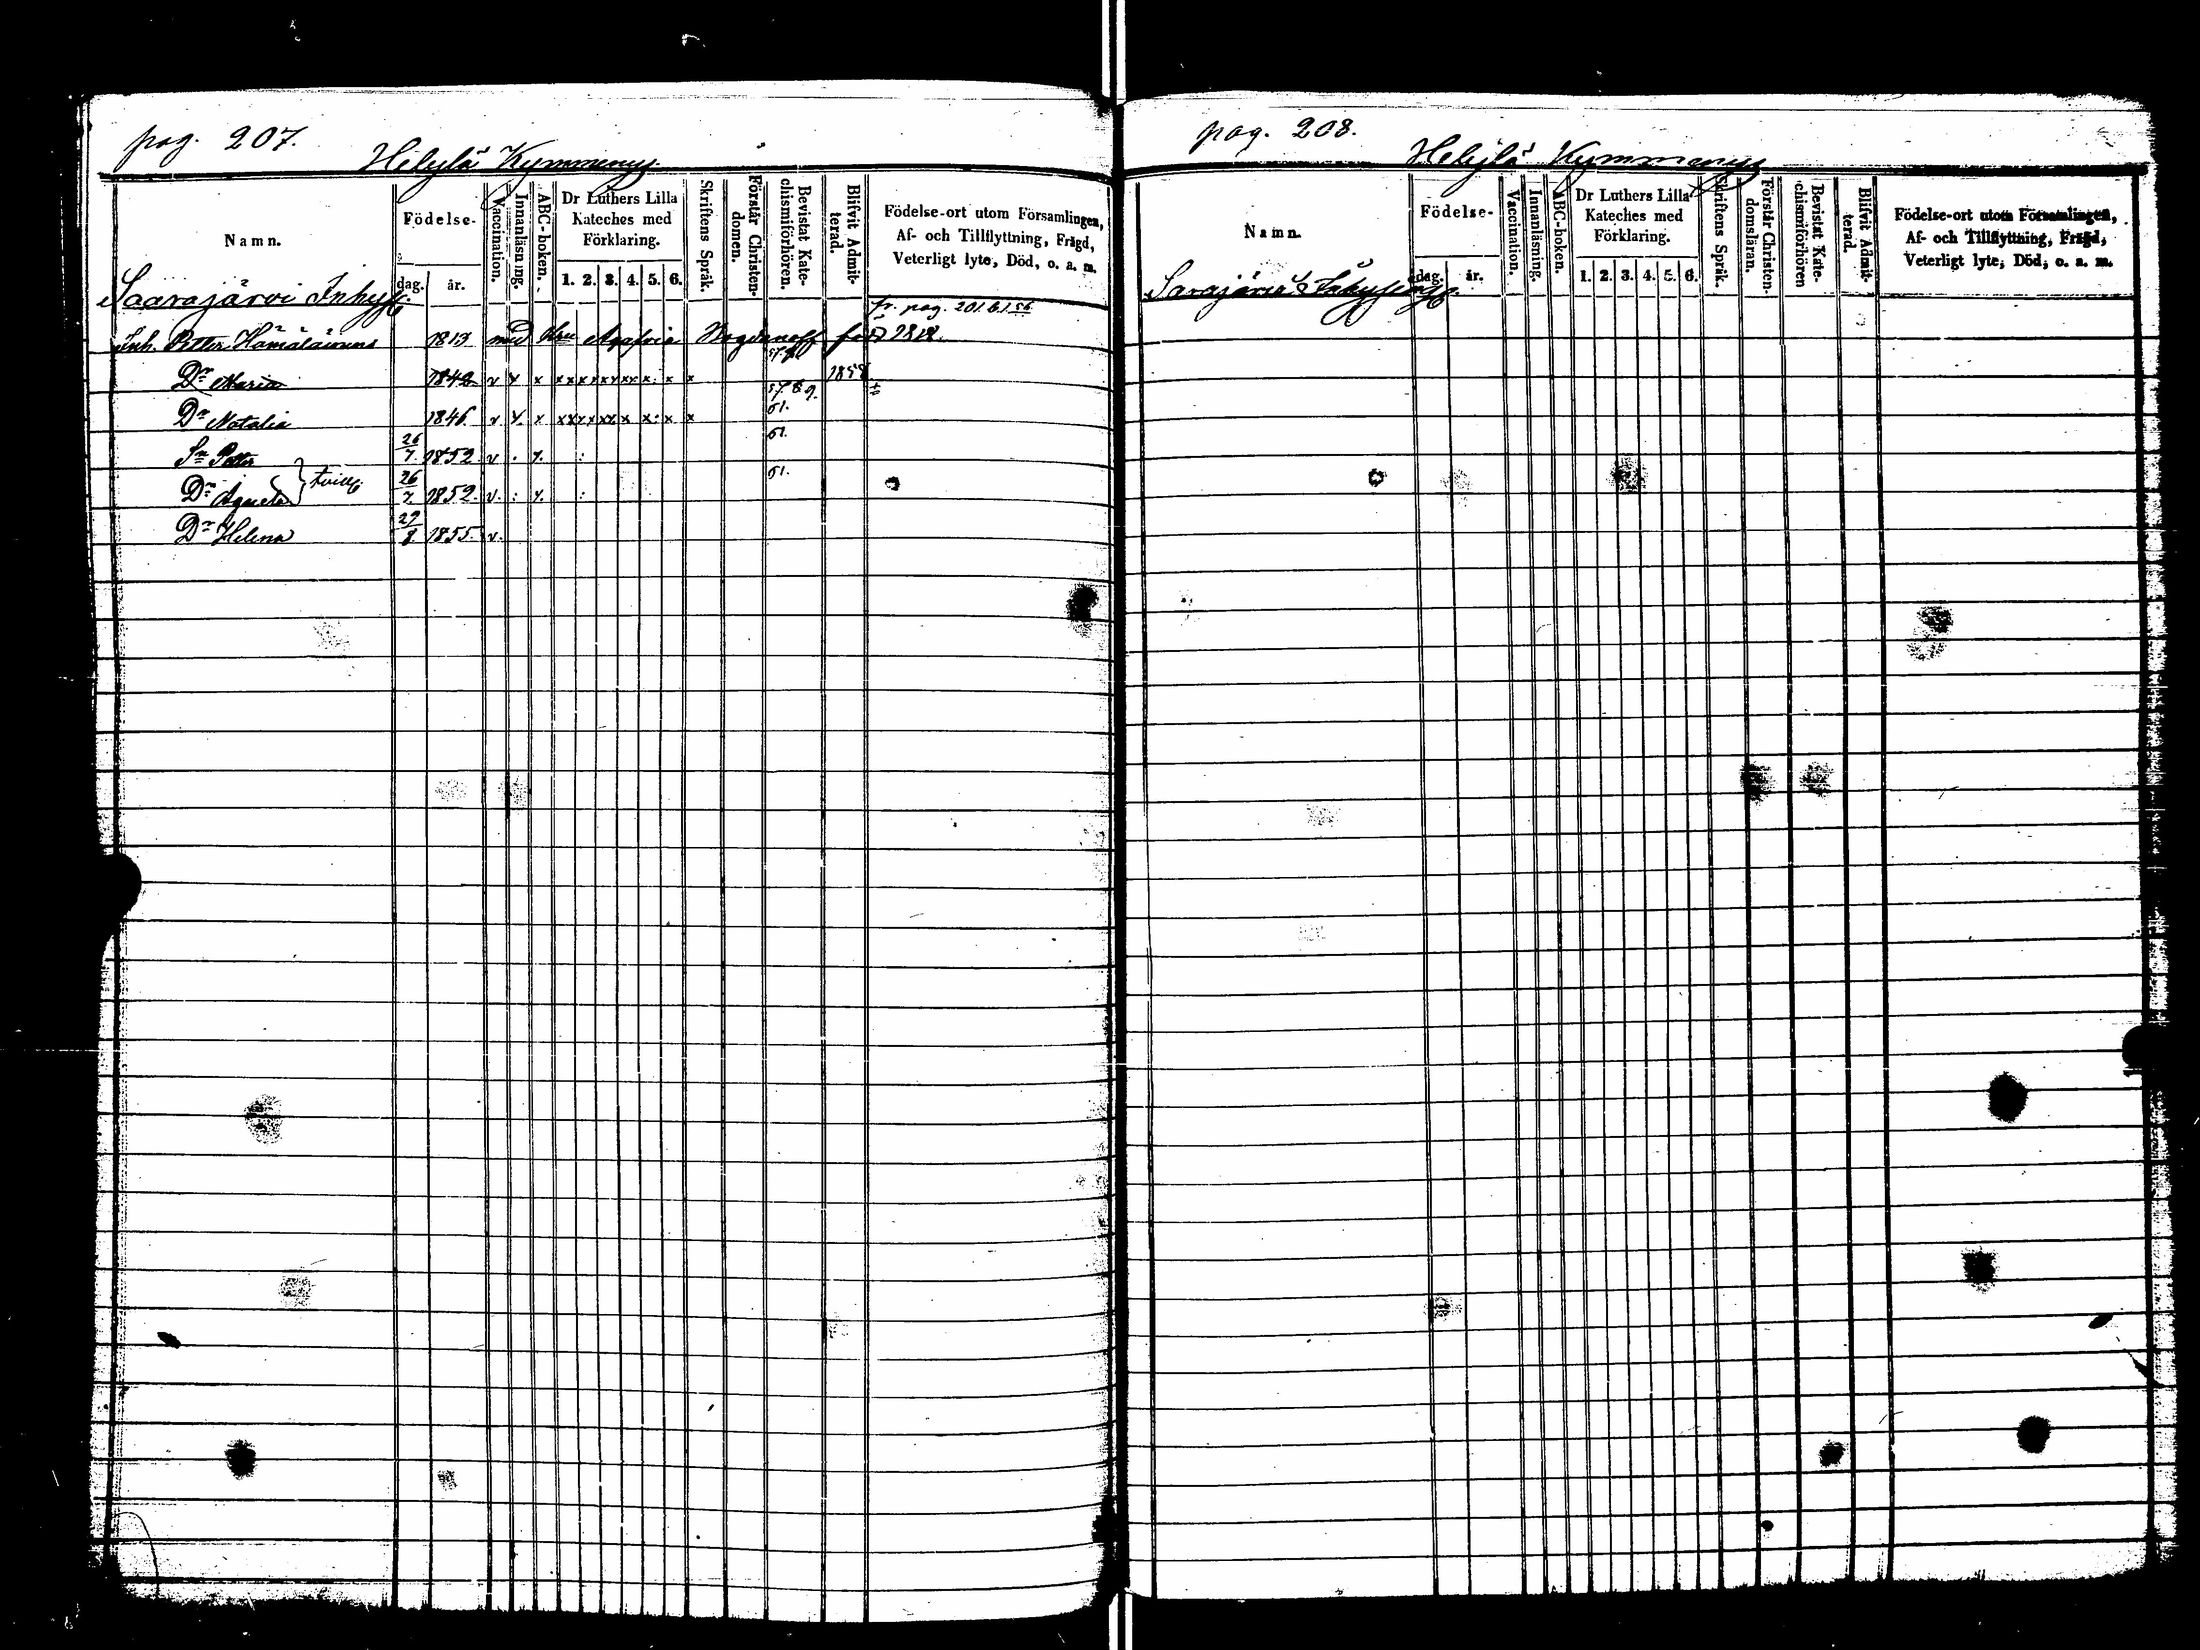 pag. 207.
Helylä Kymmenys
Namn.
Födelse-
dag.
år.
Vaccination.
Innanläsning.
ABC-boken.
Dr Luthers Lilla
Kateches med
Förklaring.
1. 2. 3. 4. 5. 6.
Skriftens Språk.
Förstår Christen-
domen.
Bevistat Kate-
chismiförhören.
Blifvit Admit-
terad.
Födelse-ort utom Församlingen,
Af- och Tillflyttning, Frägd,
Veterligt lyte, Död, o. a. m.
Saarajärvi Inhys.
fr. pag. 201. 61
Inh. Petter Hämäläinens 1813 med Hru Agafvia Bogdanoff född 1812.
Dr Maria 1842 v x x x x x x x x x x x 1858
Dr Natalia 1846 v x x x x x x x x x x x 57. 8 9. 61.
Sn Petter 26/7 1852 v . x 61.
Dr Agneta } tvill. 26/7 1852 v . : x 61.
Dr Helena 29/8 1855 v.
pag. 208.
Helylä Kymmenys
Namn.
Födelse-
dag.
år.
Vaccination.
Innanläsning.
ABC-boken.
Dr Luthers Lilla
Kateches med
Förklaring.
1. 2. 3. 4. 5. 6.
Skriftens Språk.
Förstår Christen-
domsläran.
Bevistat Kate-
chismiförhören
Blifvit Admit-
terad.
Födelse-ort utom Församlingen,
Af- och Tillflyttning, Frägd,
Veterligt lyte, Död, o. a. m.